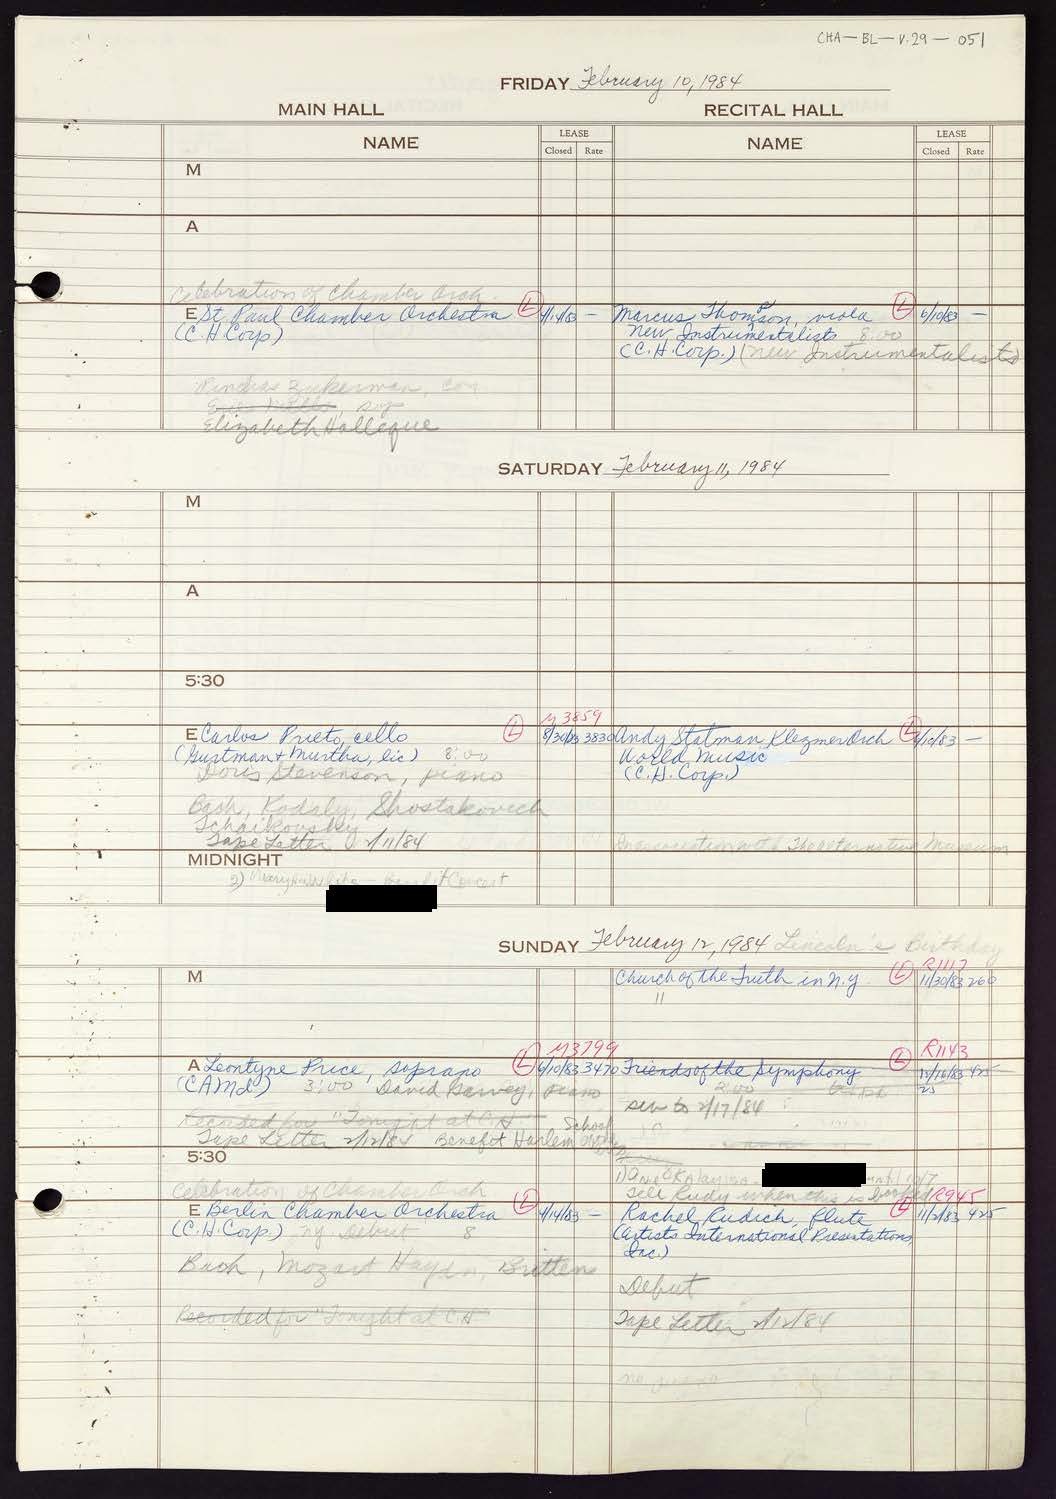 CHA-BL-V.29-051
FRIDAY February 10, 1984
MAIN HALL RECITAL HALL
NAME LEASE Closed Rate NAME LEASE Closed Rate
M
A
Celebration of Chamber Orch.
E St. Paul Chamber Orchestra L 4/14/83 —
(C.H. Corp)
Pinchas Zukerman, con
Elizabeth Holleque
Marcus Thompson, viola L 6/10/83 —
New Instrumentalists 8:00
(C.H. Corp.) (New Instrumentalists)
SATURDAY February 11, 1984
M
A
5:30
M3859
E Carlos Prieto, cello L 8/30/83 3830
(Gurtman & Murtha, Inc) 8:00
Doris Stevenson, piano
Bach, Kodaly, Shostakovich
Tchaikovsky
Tape Letter 2/11/84
Andy Statman Klezmer Orch L 6/10/83 —
World Music
(C.H. Corp.)
In association with The Alternative Museum
MIDNIGHT
2) Benefit Concert
SUNDAY February 12, 1984 Lincoln's Birthday
M
R1117
Church of the Truth in N.Y. L 11/30/83 260
"
M3799
A Leontyne Price, soprano L 6/10/83 3470
(CAMI) 3:00 David Garvey, piano
Recorded for "Tonight at C.H."
Tape Letter 2/12/84 Benefit Harlem School
R1143
Friends of the Symphony L 12/16/83 425
2:00 25
sen to 2/17/84
5:30
tell Rudy when this is
Celebration of Chamber Orch
E Berlin Chamber Orchestra L 4/14/83 —
(C.H. Corp.) NY Debut 8
Bach, Mozart, Haydn, Britten
Recorded for "Tonight at C.H."
R945
Rachel Rudich, flute L 11/2/83 425
(Artists International Presentations,
Inc.)
Debut
Tape Letter 2/12/84